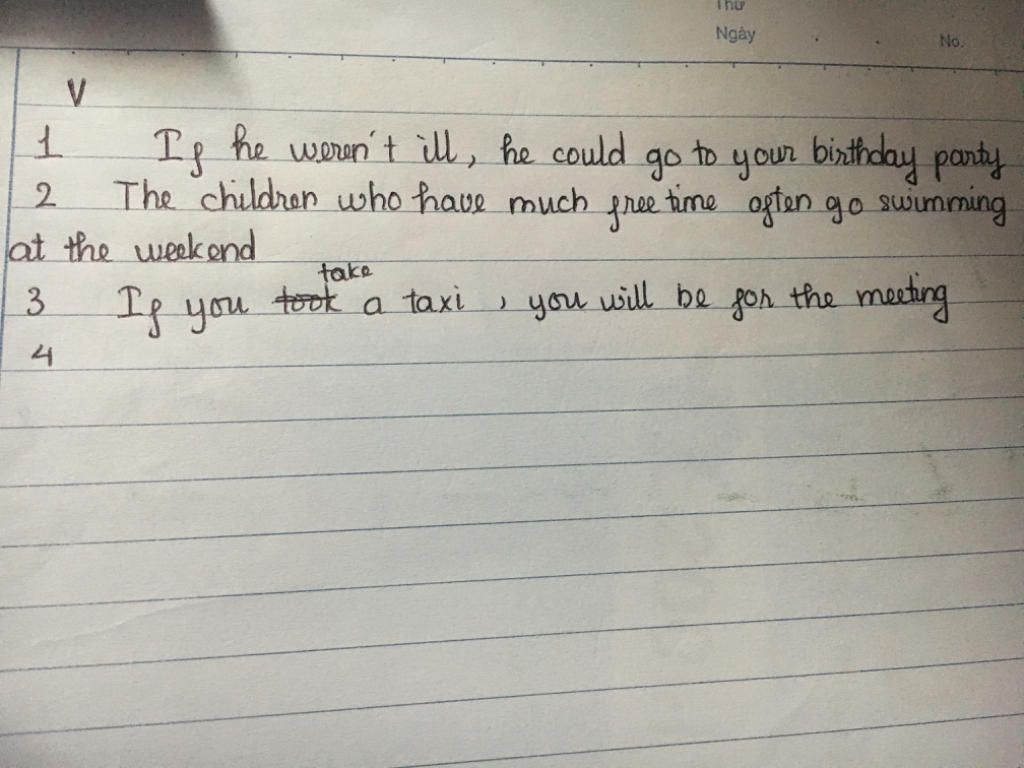 Thứ
Ngày
No.
V
1 If he weren't ill, he could go to your birthday party
2 The children who have much free time often go swimming
at the weekend
take
3 If you took a taxi, you will be for the meeting
4